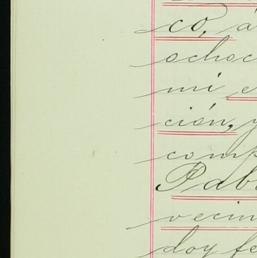 co, á
ochoc
mi e
ción, y
comp
Pab
vecin
doy fe